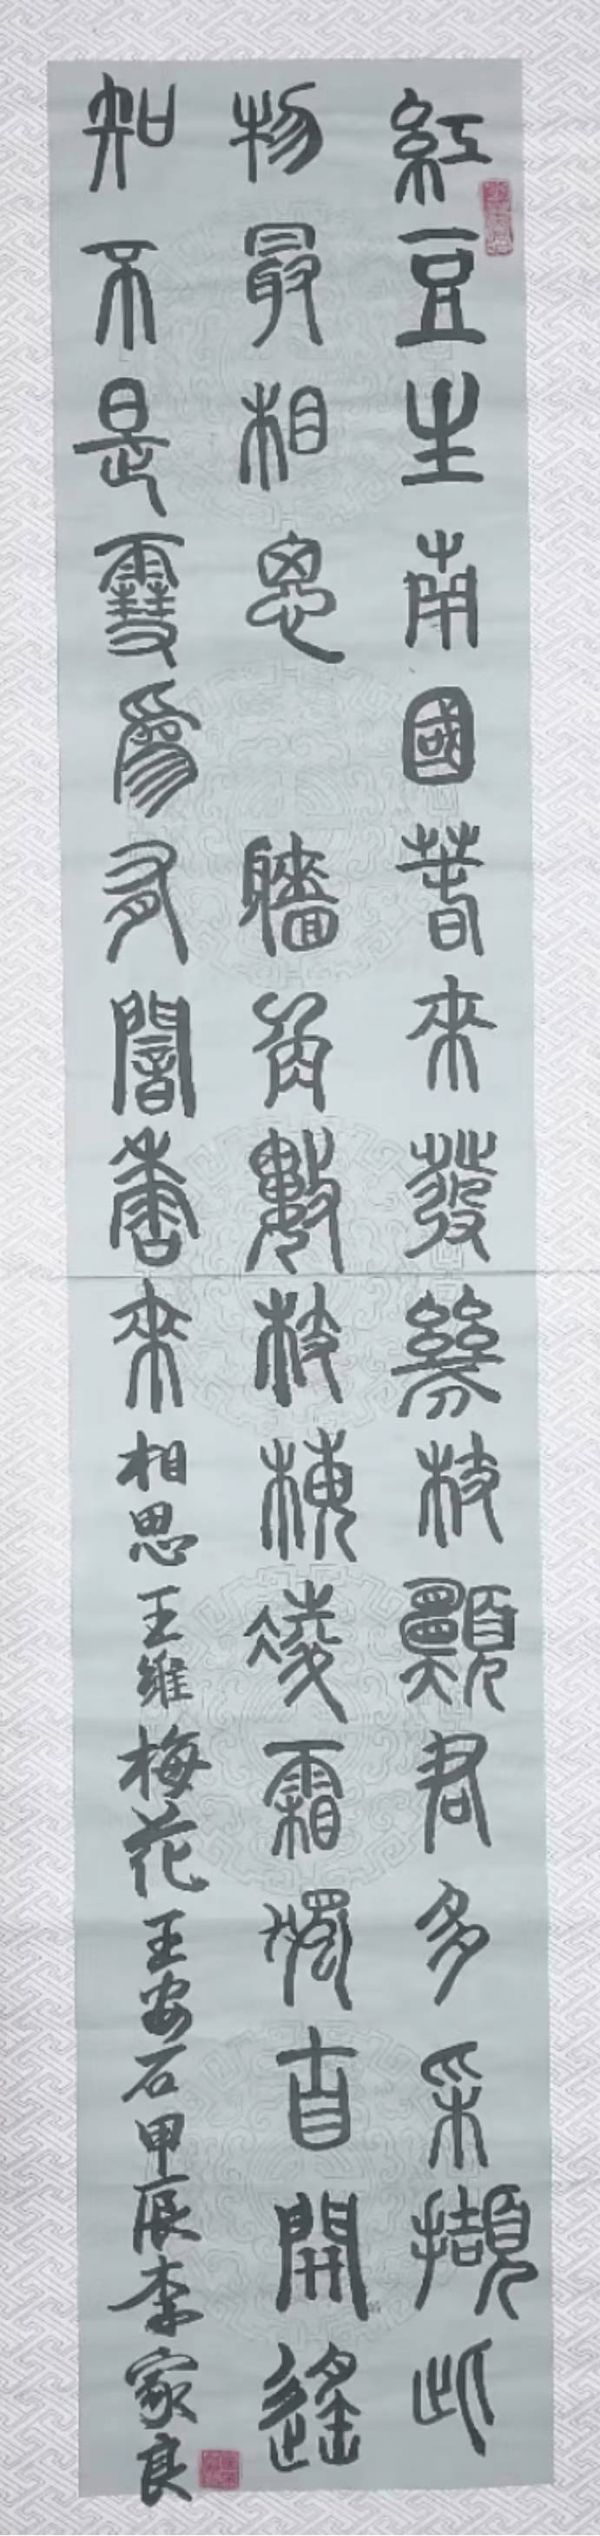 紅豆生南國春來發幾枝願君多采擷此
物最相思 牆角數枝梅凌霜獨自開遥
知不是雪為有闇香來相思王維梅花王安石甲辰李家良